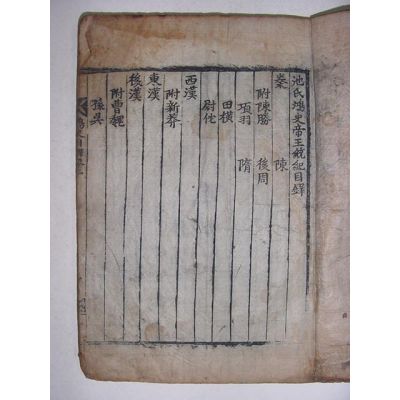 池氏鴻史帝王統紀目錄
秦 陳
附陳勝 後周
項羽 隋
田橫
尉佗
西漢
附新莽
東漢
後漢
附曹魏
孫吳